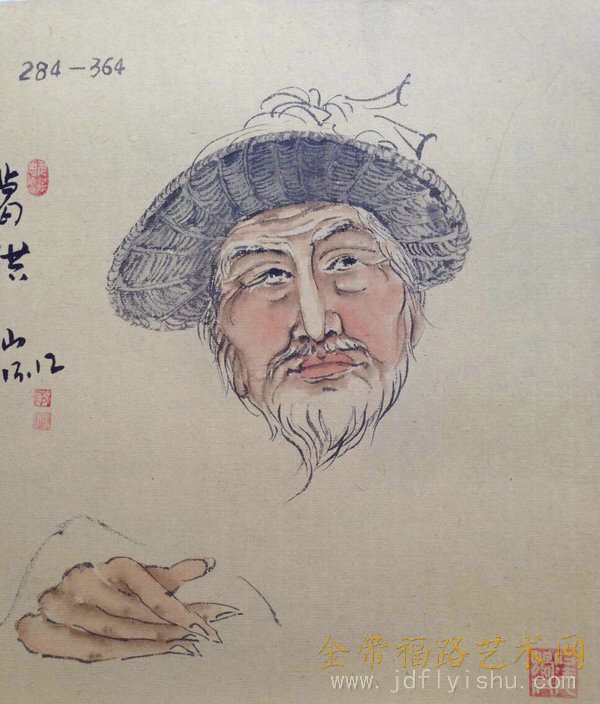 284-364
葛洪
山
金带福路艺术网
www.jdflyishu.com